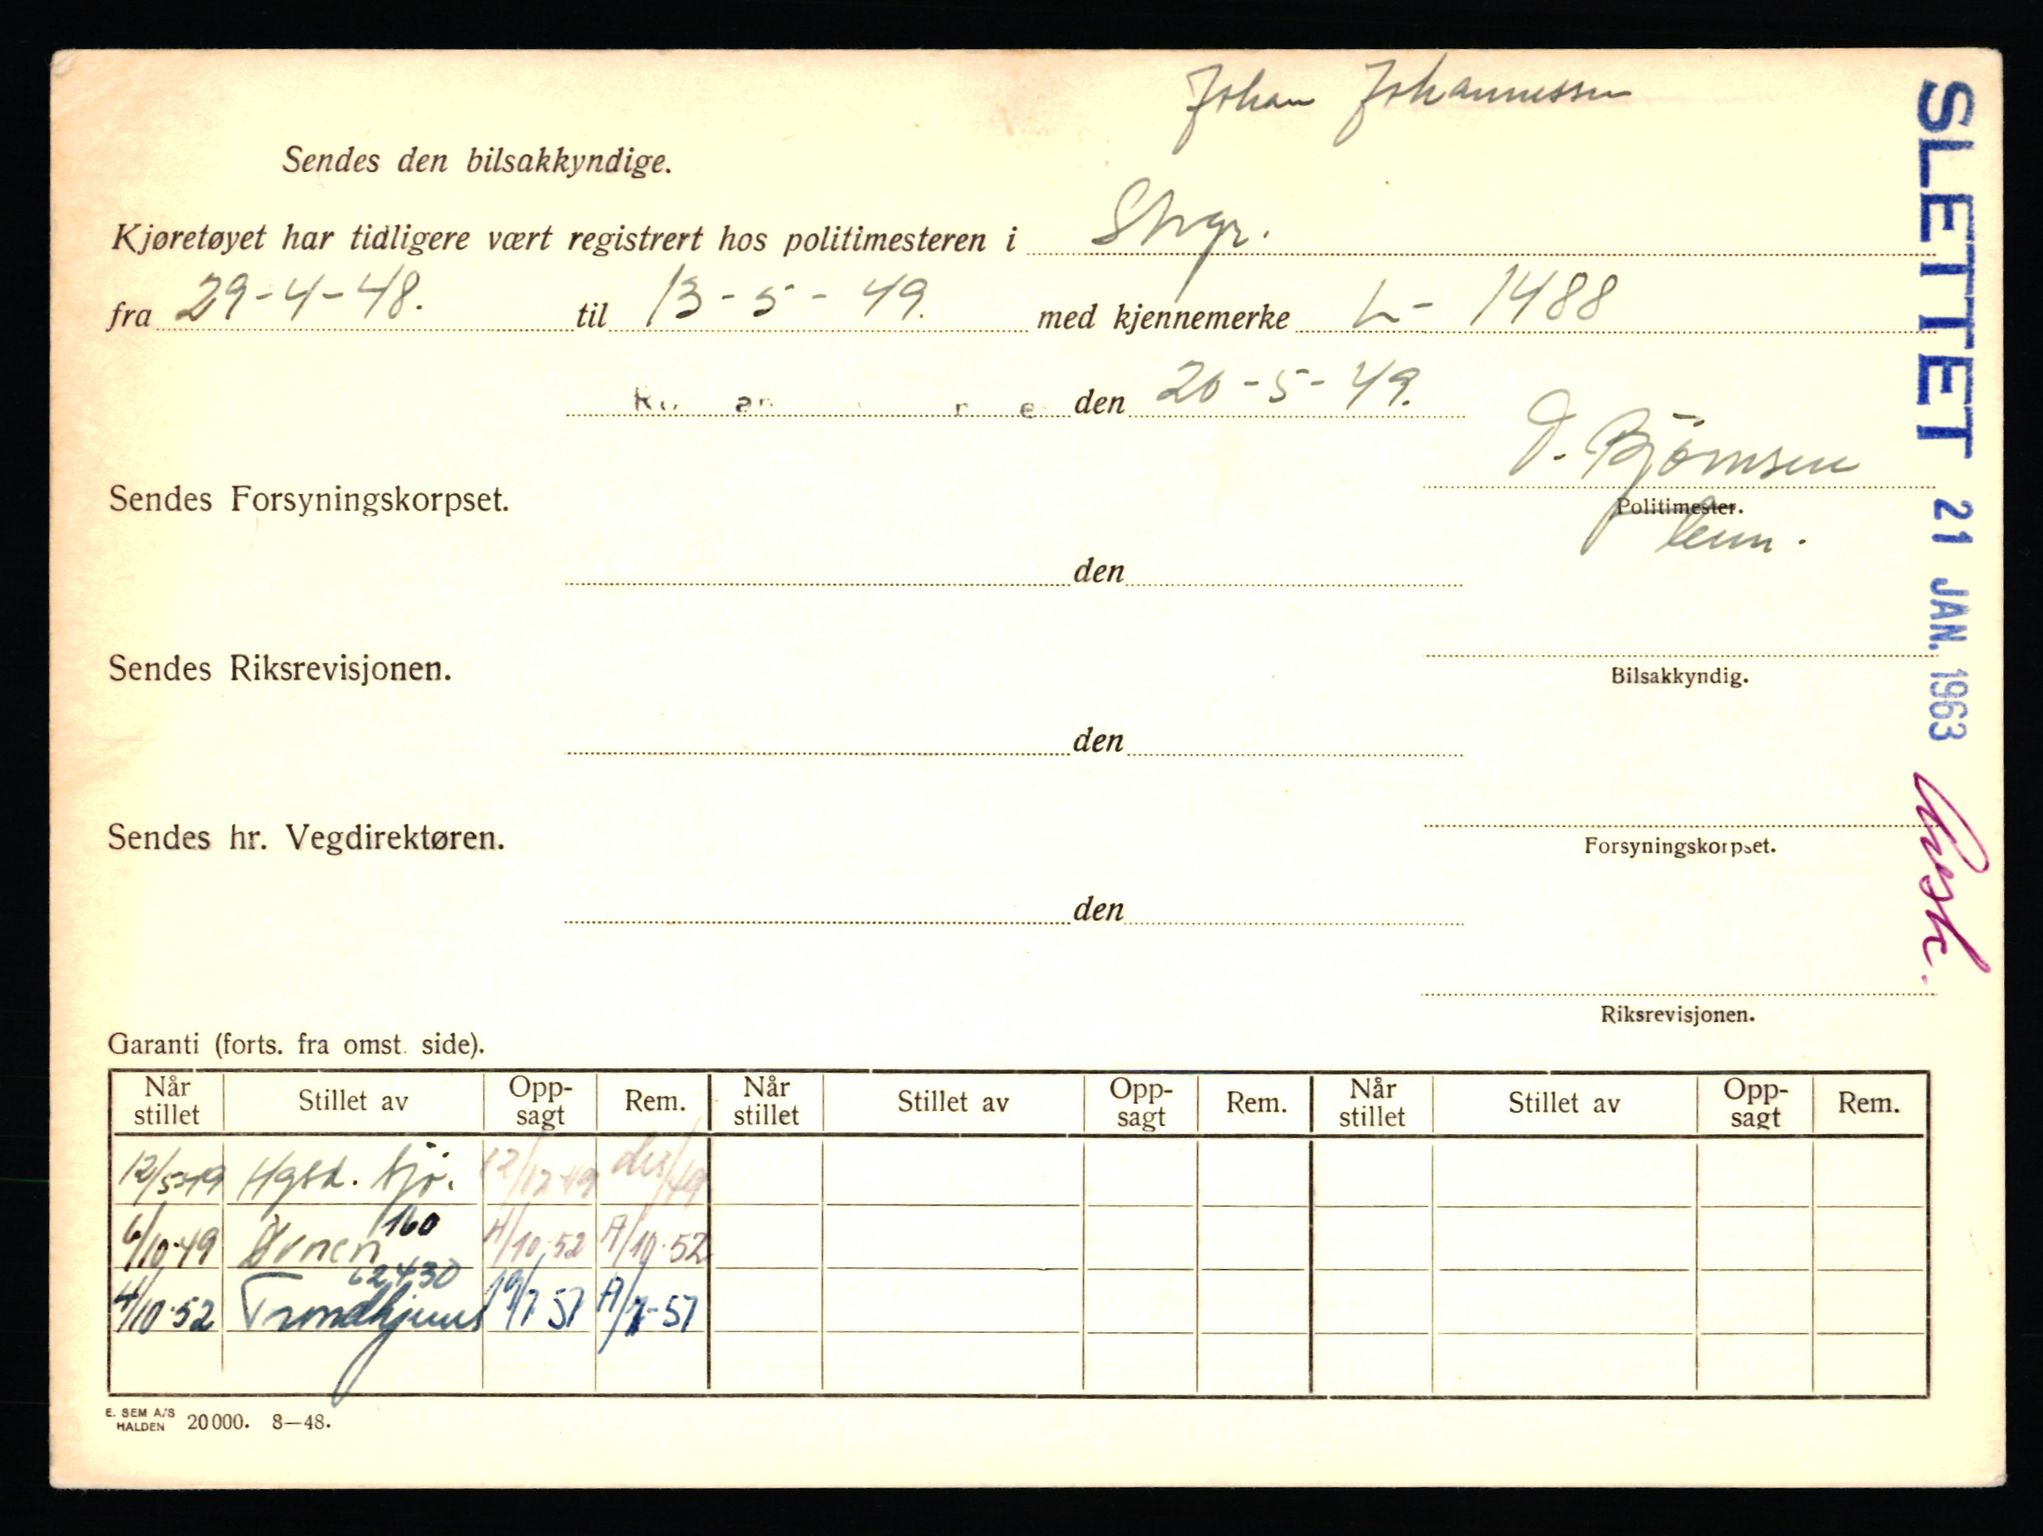 Johan Johannessen
Sendes den bilsakkyndige.
Kjøretøyet har tidligere vært registrert hos politimesteren i Stvgr.
fra 29-4-48. til 13-5-49. med kjennemerke L- 1488
den 20-5-49.
D. Bjørnsen
Sendes Forsyningskorpset.
Politimester.
den
Sendes Riksrevisjonen.
Bilsakkyndig.
den
Sendes hr. Vegdirektøren.
Forsyningskorpset.
den
Riksrevisjonen.
SLETTET 21 JAN. 1963
Garanti (forts. fra omst. side).
Når stillet Stillet av Opp-sagt Rem. Når stillet Stillet av Opp-sagt Rem. Når stillet Stillet av Opp-sagt Rem.
12/5-49 Hgsd. Sjø. 12/12-49 des/49
160
6/10-49 4/10-52 A/10-52
62430
4/10-52 Trondhjems 19/7 57 A/7-57
E. SEM A/S
HALDEN 20000. 8—48.